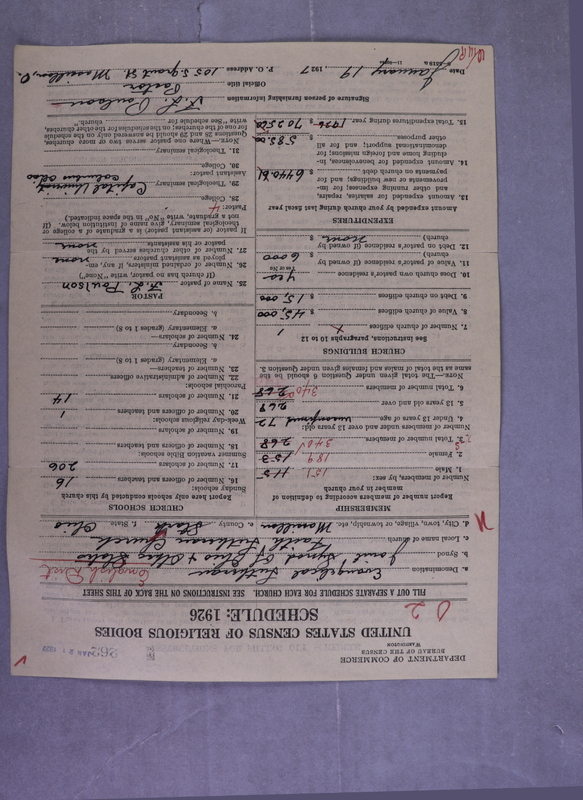 DEPARTMENT OF COMMERCE
BUREAU OF THE CENSUS
WASHINGTON
UNITED STATES CENSUS OF RELIGIOUS BODIES
SCHEDULE: 1926
FILL OUT A SEPARATE SCHEDULE FOR EACH CHURCH. SEE INSTRUCTIONS ON THE BACK OF THIS SHEET
a. Denomination Evangelical Lutheran
b. Synod Joint Synod of Ohio & Other States English Dist
c. Local name of church Faith Lutheran Church
d. City, town, village, or township, etc. Massillon e. County Stark f. State Ohio
MEMBERSHIP
Report number of members according to definition of member in your church
Number of members, by sex:
1. Male 151 115
2. Female 189 153
3. Total number of members 340 268
Number of members under and over 13 years old:
4. Under 13 years of age 72
5. 13 years old and over 268
6. Total number of members 340 268
NOTE.—The total given under Question 6 should be the same as the total of males and females given under Question 3.
CHURCH BUILDINGS
See instructions, paragraphs 10 to 12
7. Number of church edifices 1
8. Value of church edifices $ 45,000
9. Debt on church edifices $ 15,000
10. Does church own pastor's residence yes
(Yes or No)
11. Value of pastor's residence (if owned by church) $ 6000
12. Debt on pastor's residence (if owned by church) $ None
EXPENDITURES
Amount expended by your church during last fiscal year
13. Amount expended for salaries, repairs, and other running expenses; for improvements or new buildings; and for payments on church debt $ 6440.61
14. Amount expended for benevolences, including home and foreign missions; for denominational support; and for all other purposes $ 585.00
15. Total expenditures during year 1926 $ 7025.00
CHURCH SCHOOLS
Report here only schools conducted by this church
Sunday schools:
16. Number of officers and teachers 16
17. Number of scholars 206
Summer vacation Bible schools:
18. Number of officers and teachers
19. Number of scholars
Week-day religious schools:
20. Number of officers and teachers 1
21. Number of scholars 14
Parochial schools:
22. Number of administrative officers
23. Number of teachers—
a. Elementary (grades 1 to 8)
b. Secondary
24. Number of scholars—
a. Elementary (grades 1 to 8)
b. Secondary
PASTOR
25. Name of pastor F. L. Poulson
(If church has no pastor, write "None")
26. Number of ordained ministers, if any, employed as pastor's assistants none
27. Number of other churches served by the pastor or his assistants none
If pastor (or assistant pastor) is a graduate of a college or theological seminary, give name of institution below. (If not a graduate, write "No" in the space indicated.)
Pastor: 4
28. College
29. Theological seminary Capital University Columbus Ohio
Assistant pastor:
30. College
31. Theological seminary
Signature of person furnishing information F. L. Poulson
Official title Pastor
Date January 19, 1927. P. O. Address 105 S. Grant St. Massillon, O.